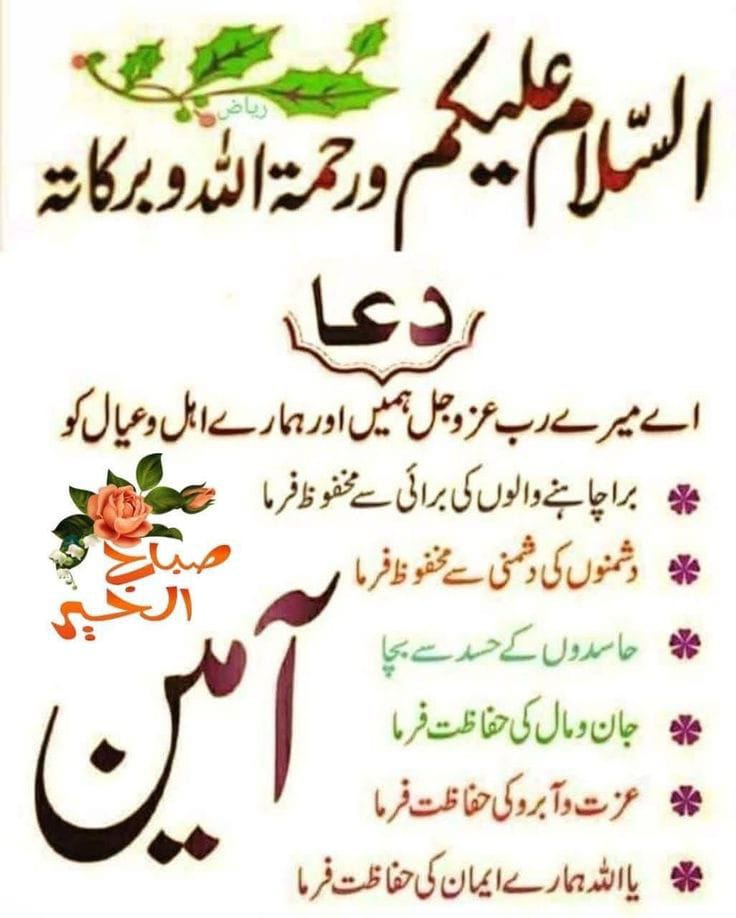 ریاض
السّلام علیکم ورحمۃ اللہ وبرکاتہ
دعا
اے میرے رب عزوجل ہمیں اور ہمارے اہل وعیال کو
برا چاہنے والوں کی برائی سے محفوظ فرما
دشمنوں کی دشمنی سے محفوظ فرما
حاسدوں کے حسد سے بچا
جان و مال کی حفاظت فرما
عزت و آبرو کی حفاظت فرما
یا اللہ ہمارے ایمان کی حفاظت فرما
صباح
الخير
آمین